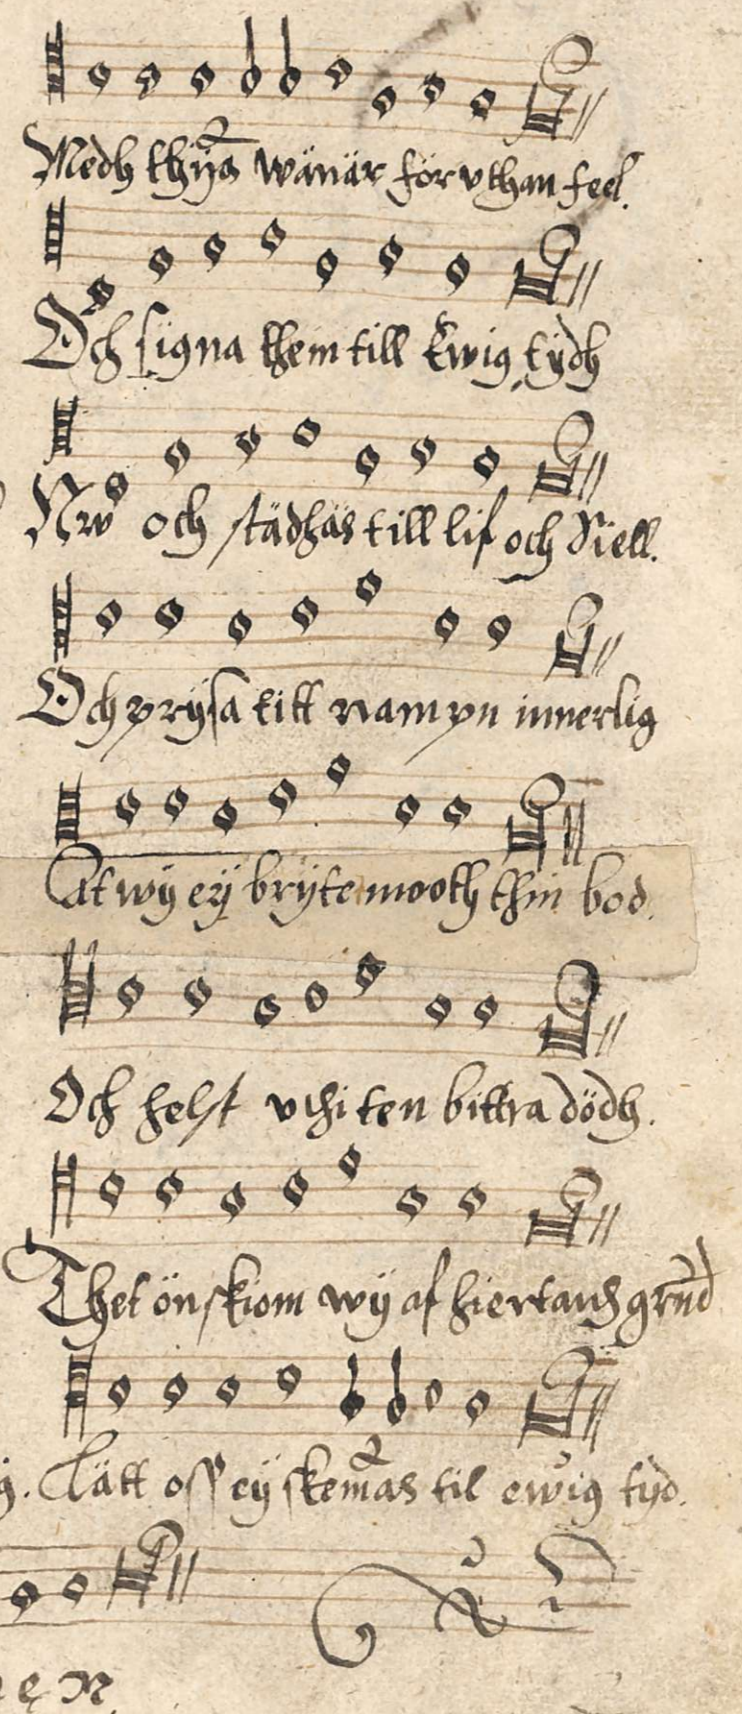 Medh thijna wänär förvthan feel.
Och signa them till Ewig tijdh
Nw och städhäs till lif och Siell.
Och prijsa titt nampn innerlig
At wij eij brijte mooth thin bod.
Och helst vthi ten bittra dödh.
Thet önskiom wij af hiertans grund
Lätt oss eij skemas til ewig tijd.